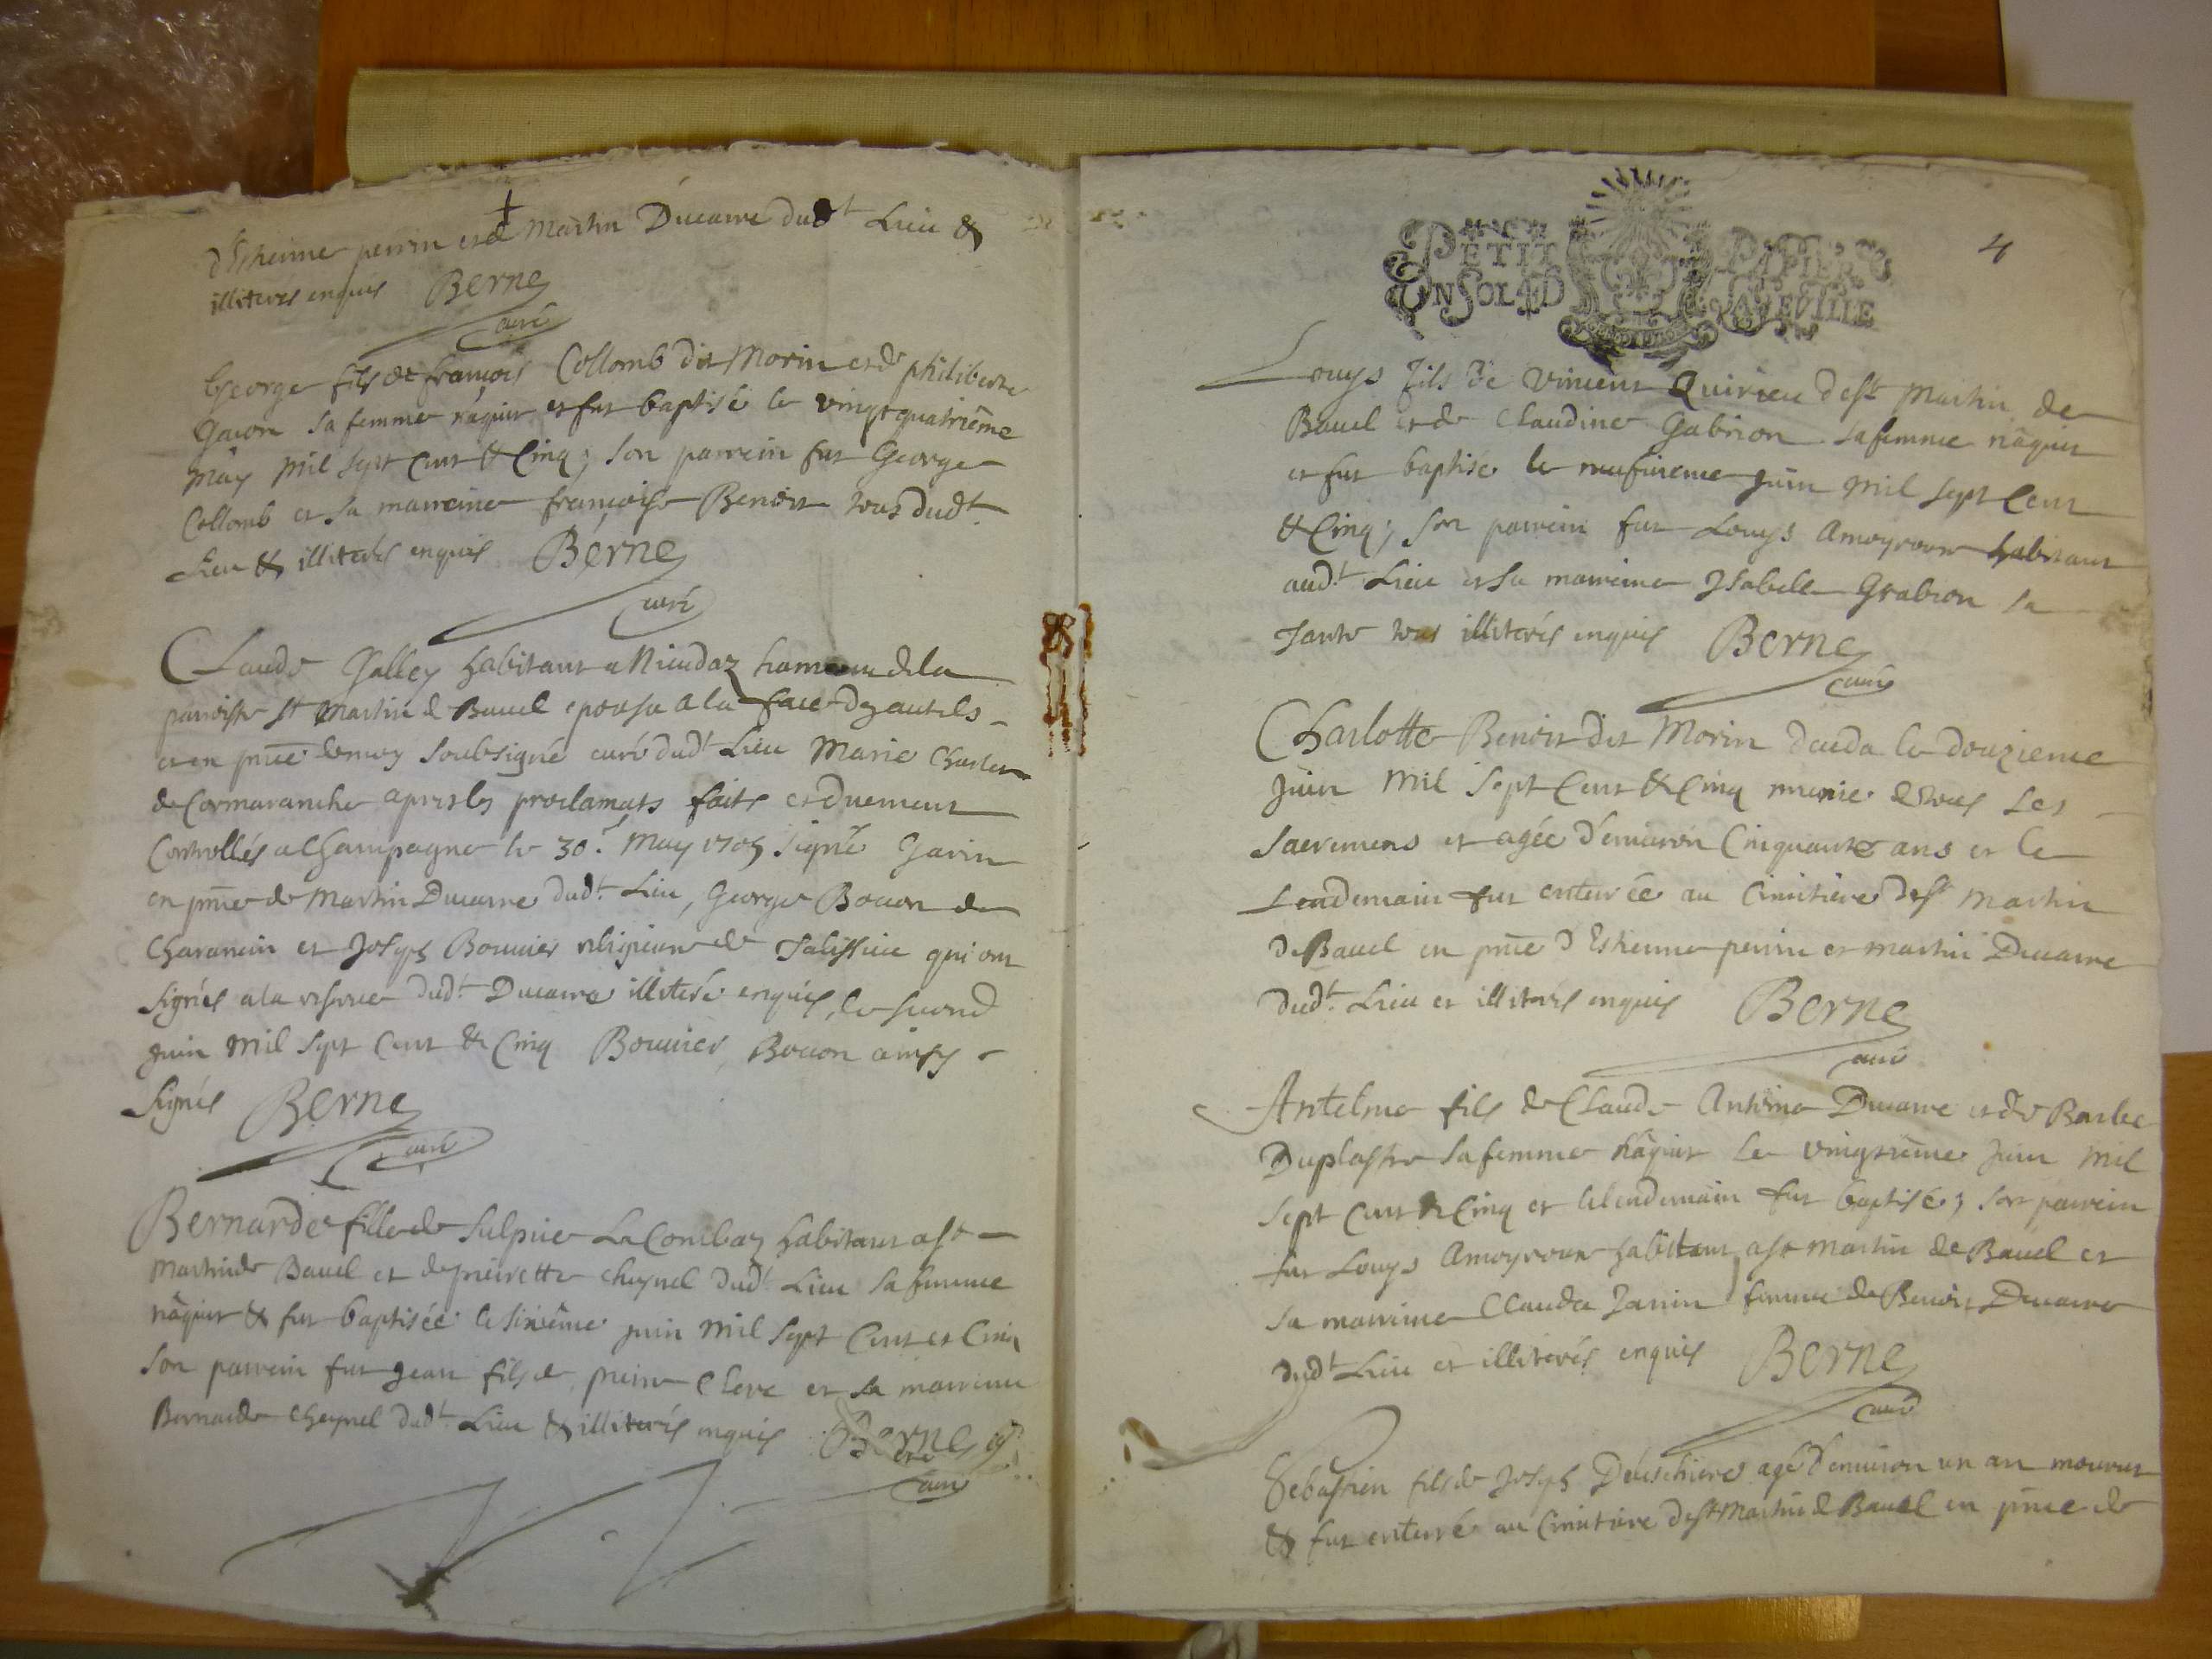 d'Estienne perrin et de Martin Ducarre dudt Lieu &
illiterés enquis Berne
curé
George fils de françois Collomb dit Morin et de philiberte
Gavon sa femme nâquit et fut baptisé le vingt quatriême
may mil sept Cent & Cinq; son parrein fut George
Collomb et sa marreine françoise Benoit tous dudt
Lieu & illiterés enquis Berne
curé
Claude Galley habitant a Niudaz hameau de la
parroisse st Martin de Bavel epousa a la face des autels
et en pnce de moy soubsigné curé dudt Lieu Marie Charlet
de Cormaranche apres les proclamats faits et duement
Controllés a Champagne le 30e May 1705 signé Jarin
en pnce de Martin Ducarre dudt Lieu, George Bovon de
Charancin et Joseph Bouvier religieux de Talissieu qui ont
signés a la reserve dudt Ducarre illiteré enquis, le second
juin mil sept Cent & Cinq Bouvier, Bovon ainsy
signés Berne
curé
Bernarde fille de Sulpice La Combaz habitant a st
Martin de Bavel et de pierrette Cheynel dudt Lieu sa femme
nâquit & fut baptisée le sixiême juin mil sept Cent et Cinq
son parrein fut Jean fils de pierre Clerc et sa marreine
Bernarde Cheynel dudt Lieu & illiterés enquis Berne
curé
4
PETIT PAPIER
UN SOL 4 D LA FEUILLE
Louys fils de Vincent Quirieu de st Martin de
Bavel et de Claudine Gabrion sa femme nâquit
et fut baptisé le neufvieme juin mil sept Cent
& Cinq; son parrein fut Louys Amoyroux habitant
audt Lieu et sa marreine Isabelle Grabion sa
Tante tous illiterés enquis Berne
curé
Charlotte Benoit dit Morin deceda le douzieme
juin mil sept Cent & Cinq munie de tous les
sacremens et agée d'environ Cinquante ans et le
Lendemain fut enterrée au Cimitiere de st Martin
de Bavel en pnce d'Estienne perrin et Martin Ducarre
dudt Lieu et illiterés enquis Berne
curé
Antelme fils de Claude Antoine Ducarre et de Barbe
Duplastre sa femme nâquit le vingtiême juin mil
sept Cent & Cinq et le lendemain fut baptisé; son parrein
fut Louys Amoyroux habitant a st Martin de Bavel et
sa marreine Clauda Janin femme de Benoit Ducarre
dudt Lieu et illiterés enquis Berne
curé
Sebastien fils de Joseph agé d'environ un an mourut
& fut enterré au Cimitiere de st Martin de Bavel en pnce de